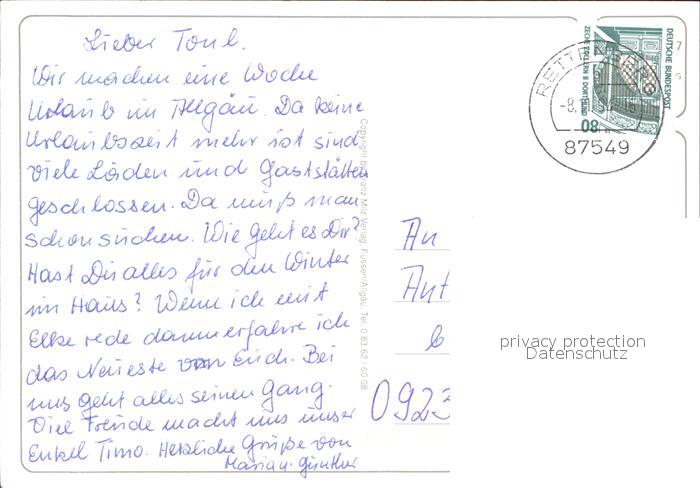 Lieber Toni.
Wir machen eine Woche
Urlaub im Allgäu. Da keine
Urlaubszeit mehr ist sind
viele Läden und Gaststätten
geschlossen. Da muß man
schon suchen. Wie geht es Dir?
Hast Du alles für den Winter
im Haus? Wenn ich mit
Elke rede dann erfahre ich
das Neueste von Euch. Bei
uns geht alles seinen Gang.
Viel Freude macht uns unser
Enkel Timo. Herzliche Grüße von
Maria u. Günther
Copyright by Franz Milz Verlag, Füssen/Allgäu, Tel. 0 83 62 / 60 08
An
Ant
0923
DEUTSCHE BUNDESPOST
ZECHE ZOLLERN II DORTMUND
08
RETTENBERG
87549
privacy protection
Datenschutz